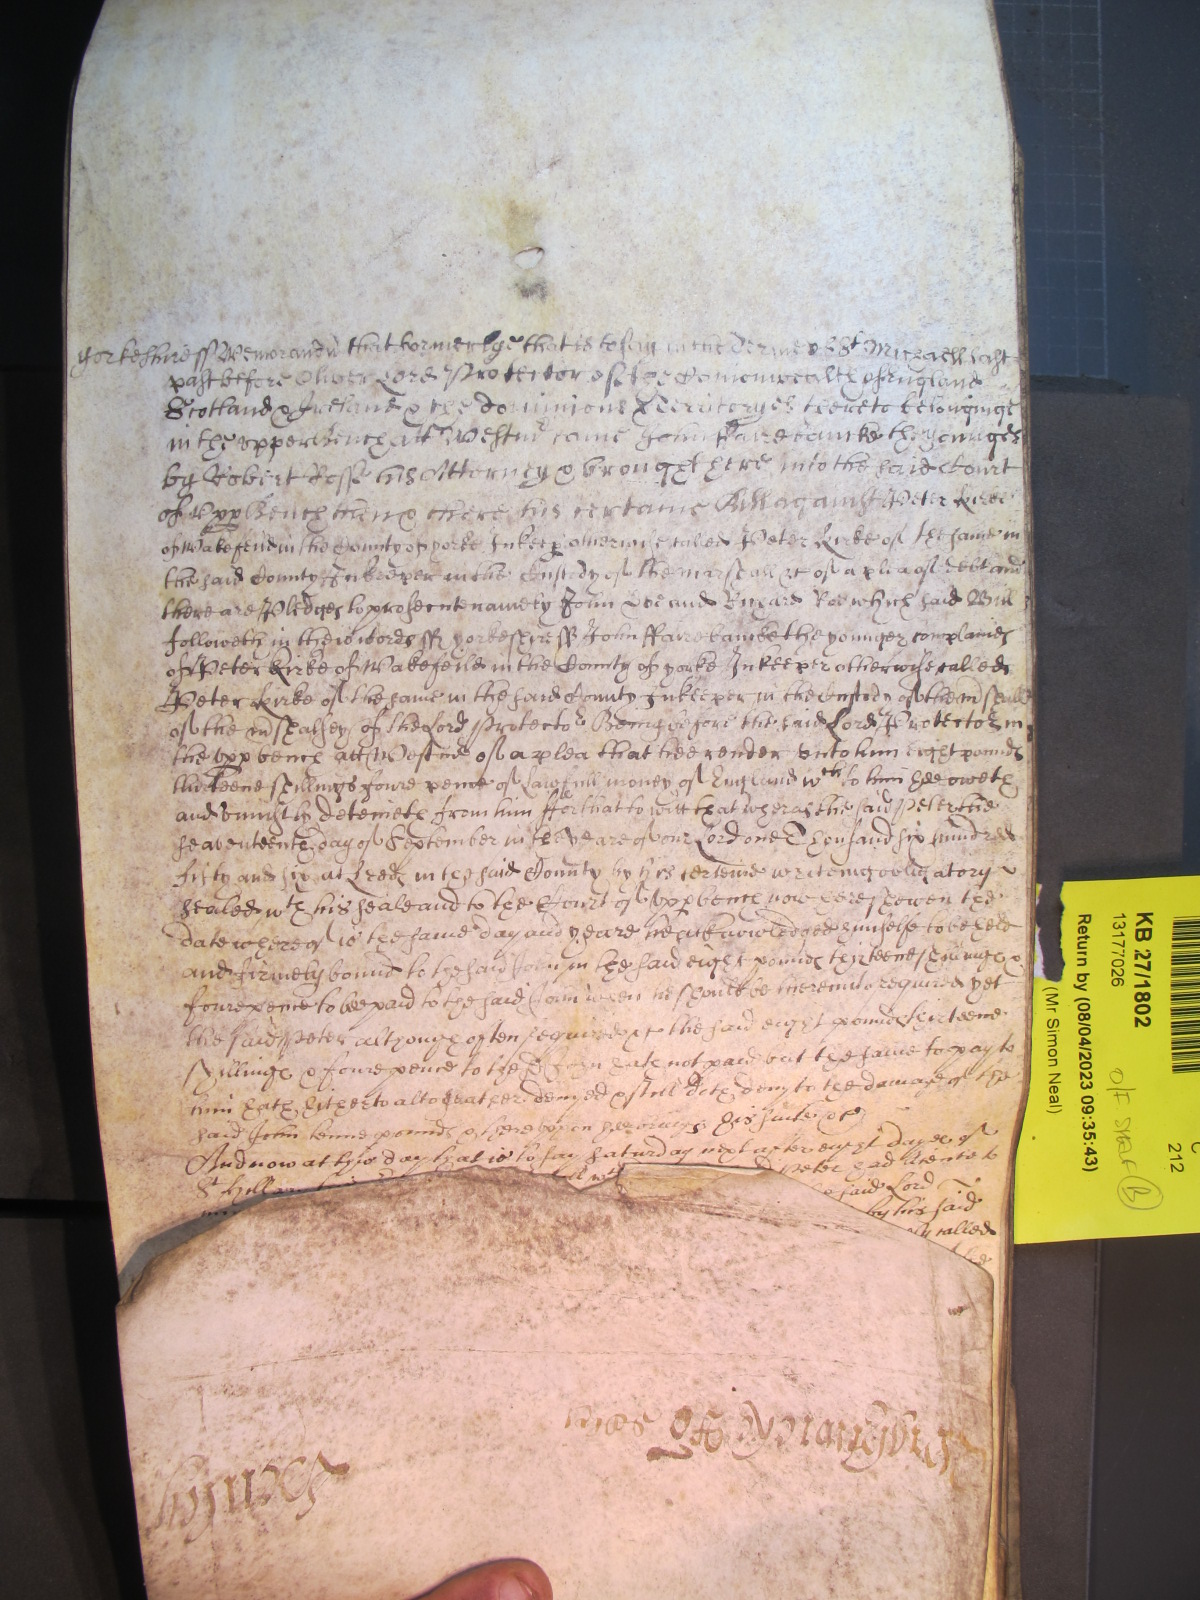 Yorkeshire ss Memorand that formerlye that is to say in the Terme of St Michaell last
past before Oliver Lord Protector of the Comonwealth of England
Scotland & Ireland & the dominions & Territoryes thereto belonginge
in the upper Bench att Westmr came John Fairebanke the younger
by Robert Rosse his Attorney & brought here into the said Court
of Upp Bench then & there his certaine Bill against Peter Kirke
of Wakefeild in the County of yorke Inkeep otherwise called Peter Kirke of the same in
the said County Inkeeper in the Custody of the marshall &c of a plea of debt and
there are Pledges to prosecute namely John Doe and Richard Roe which said Bill
followeth in these words ss yorkeshire ss John ffairebanke the younger complaines
of Peter Kirke of Wakefeild in the County of yorke Inkeeper otherwise called
Peter Kirke of the same in the said County Inkeeper in the Custody of the mshall
of the mshalsey of the Lord Protector Being before the said Lord Protector in
the upp bench att Westmr of a plea that hee render unto him eight pounds
thirteene shillings foure pence of lawfull money of England wch to him hee oweth
and uniustly deteineth from him ffor that to witt that wheras the said Peter the
seaventeenth day of September in the yeare of our Lord one Thousand six hundred
fifty and six at Leeds in the said County by his certeine writeing obligatory
sealed wth his seale and to the Court of Upp bench now here shewen the
date whereof is the same day and yeare he acknowledged himselfe to be held
and firmely bound to the said John in the said eight pounds thirteene shillings &
foure pence to bee paid to the said John when he should be thereunto required yet
the said Peter although often required &c the said eight pounds thirteene
shillings & foure pence to the sd John hath not paid but the same to pay to
him hath hitherto altogeather denyed & still doth deny to the damage of the
said John tenne pounds & thereupon hee brings his suite &c
And now at this day that is to say saturday next after eight dayes of
St Hillary Peter had licence to
said Lord
by his said
called
KB 27/1802
13177026
Return by (08/04/2023 09:35:43)
(Mr Simon Neal)
212
B